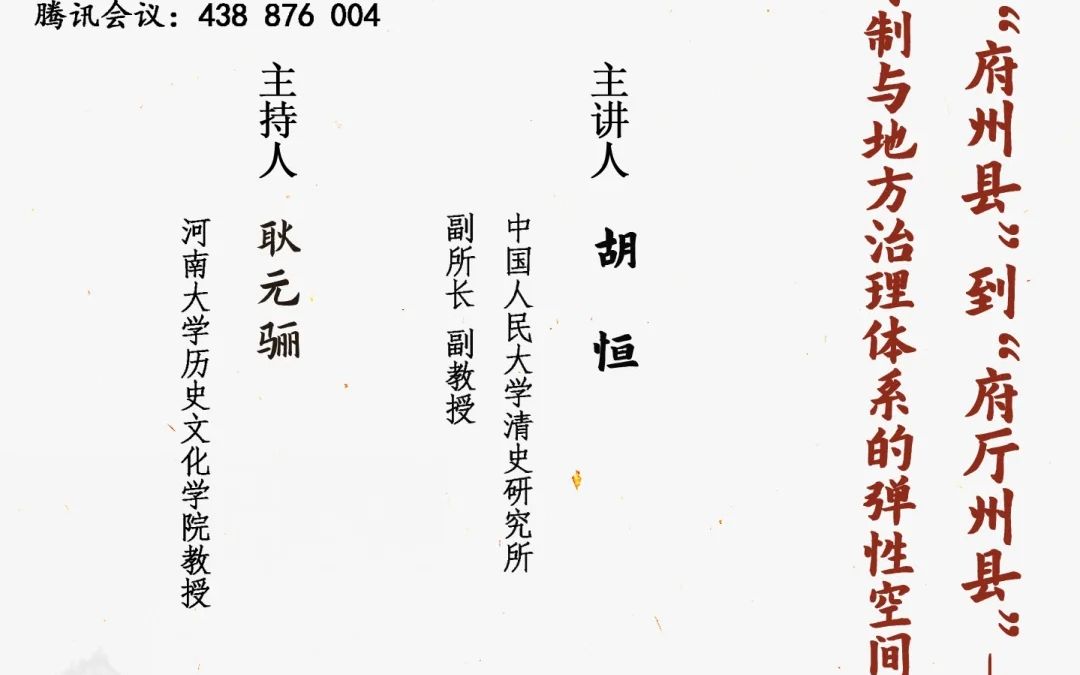 腾讯会议：438 876 004
“府州县“到”府厅州县“—
制与地方治理体系的弹性空间
主讲人 胡恒
中国人民大学清史研究所
副所长 副教授
主持人 耿元骊
河南大学历史文化学院教授